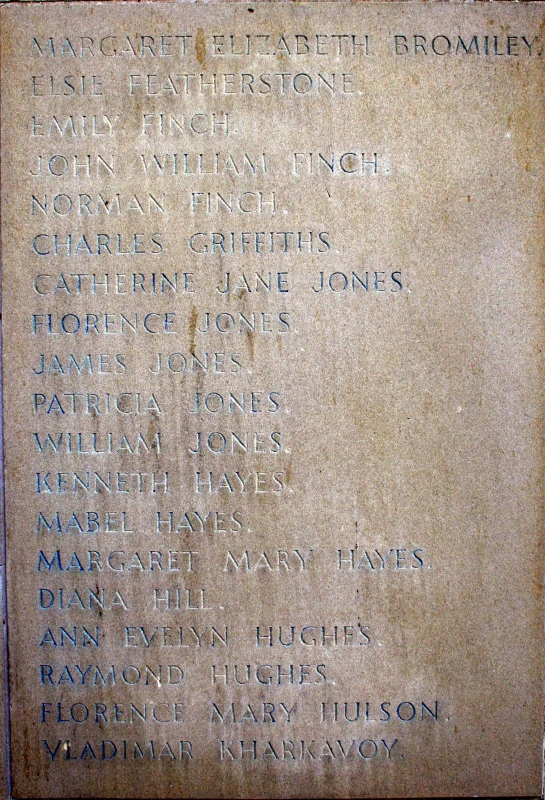 MARGARET ELIZABETH BROMILEY.
ELSIE FEATHERSTONE.
EMILY FINCH.
JOHN WILLIAM FINCH.
NORMAN FINCH.
CHARLES GRIFFITHS.
CATHERINE JANE JONES.
FLORENCE JONES.
JAMES JONES.
PATRICIA JONES.
WILLIAM JONES.
KENNETH HAYES.
MABEL HAYES.
MARGARET MARY HAYES.
DIANA HILL.
ANN EVELYN HUGHES.
RAYMOND HUGHES.
FLORENCE MARY HULSON.
VLADIMAR KHARKAVOY.